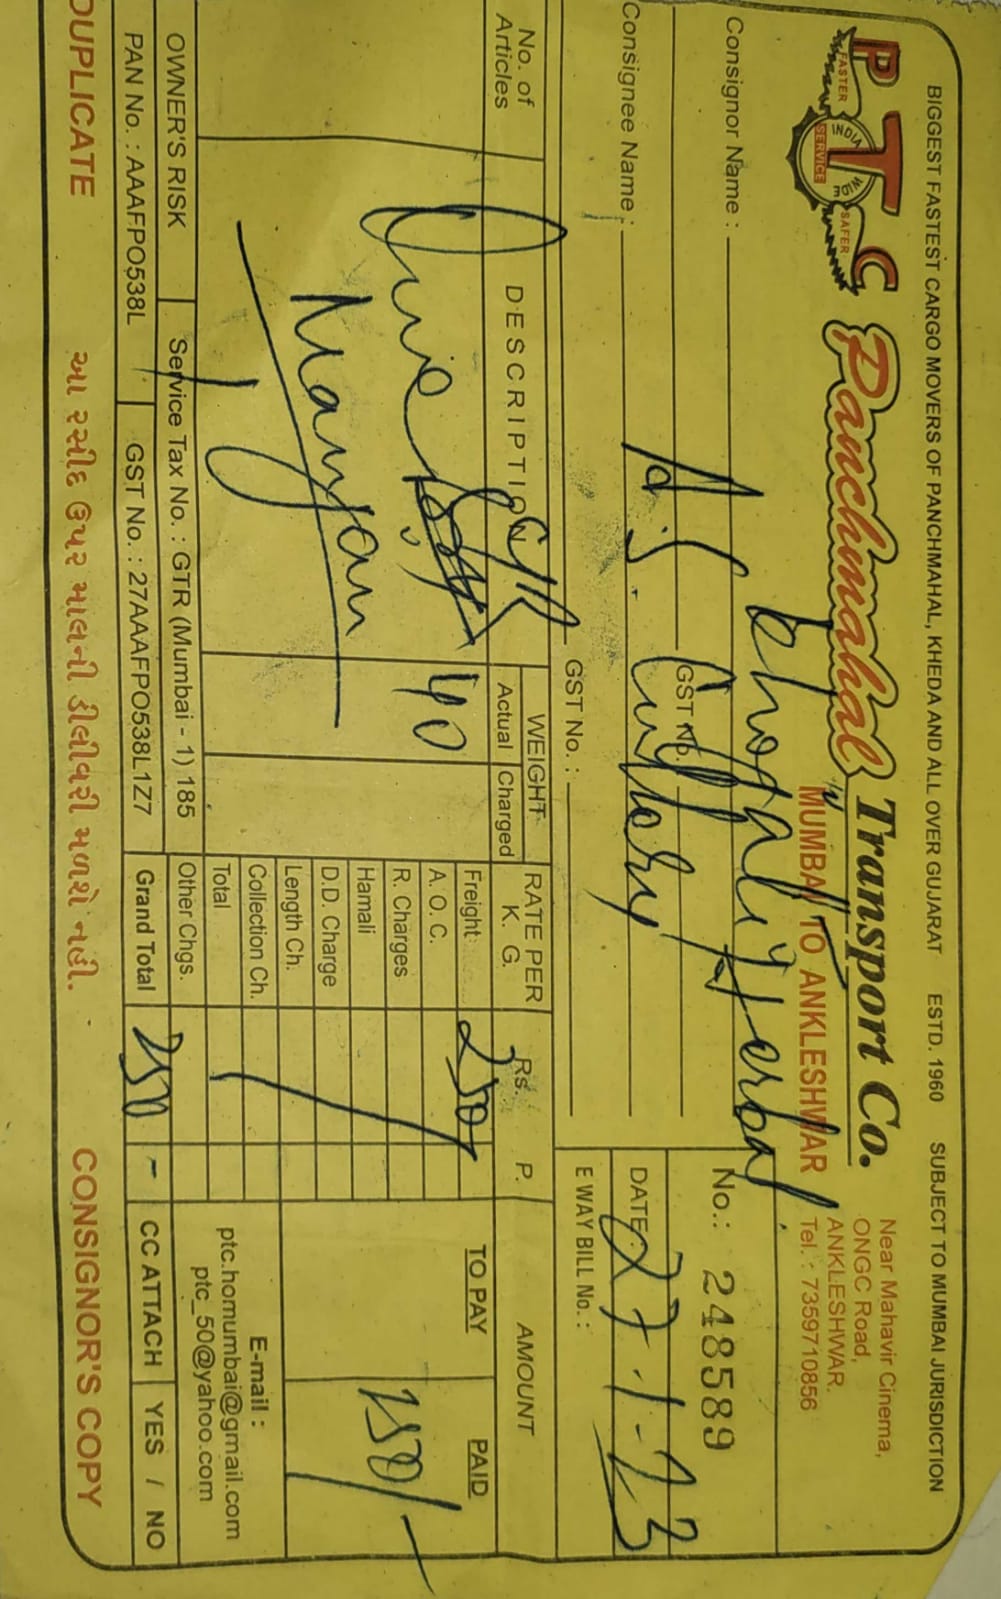 BIGGEST FASTEST CARGO MOVERS OF PANCHMAHAL, KHEDA AND ALL OVER GUJARAT ESTD. 1960 SUBJECT TO MUMBAI JURISDICTION
PTC
FASTER INDIA WIDE SAFER
SERVICE
Panchmahal Transport Co.
MUMBAI TO ANKLESHWAR
Near Mahavir Cinema,
ONGC Road,
ANKLESHWAR.
Tel. : 7359710856
Consignor Name : Herbal
GST No.
No.: 248589
Consignee Name : A.S. Cutlery
DATE: 27-1-23
GST No. :
E WAY BILL No. :
No. of Articles
DESCRIPTION
WEIGHT
Actual Charged
RATE PER K. G.
Rs. P.
AMOUNT
TO PAY PAID
One
40
Freight 250/-
250/-
A. O. C.
R. Charges
Hamali
D.D. Charge
Length Ch.
Collection Ch.
Total
Other Chgs.
Grand Total 250 -
E-mail :
ptc.homumbai@gmail.com
ptc_50@yahoo.com
OWNER'S RISK
Service Tax No. : GTR (Mumbai - 1) 185
PAN No. : AAAFPO538L
GST No. : 27AAAFPO538L1Z7
CC ATTACH YES / NO
DUPLICATE
આ રસીદ ઉપર માલની ડીલીવરી મળશે નહી.
CONSIGNOR'S COPY